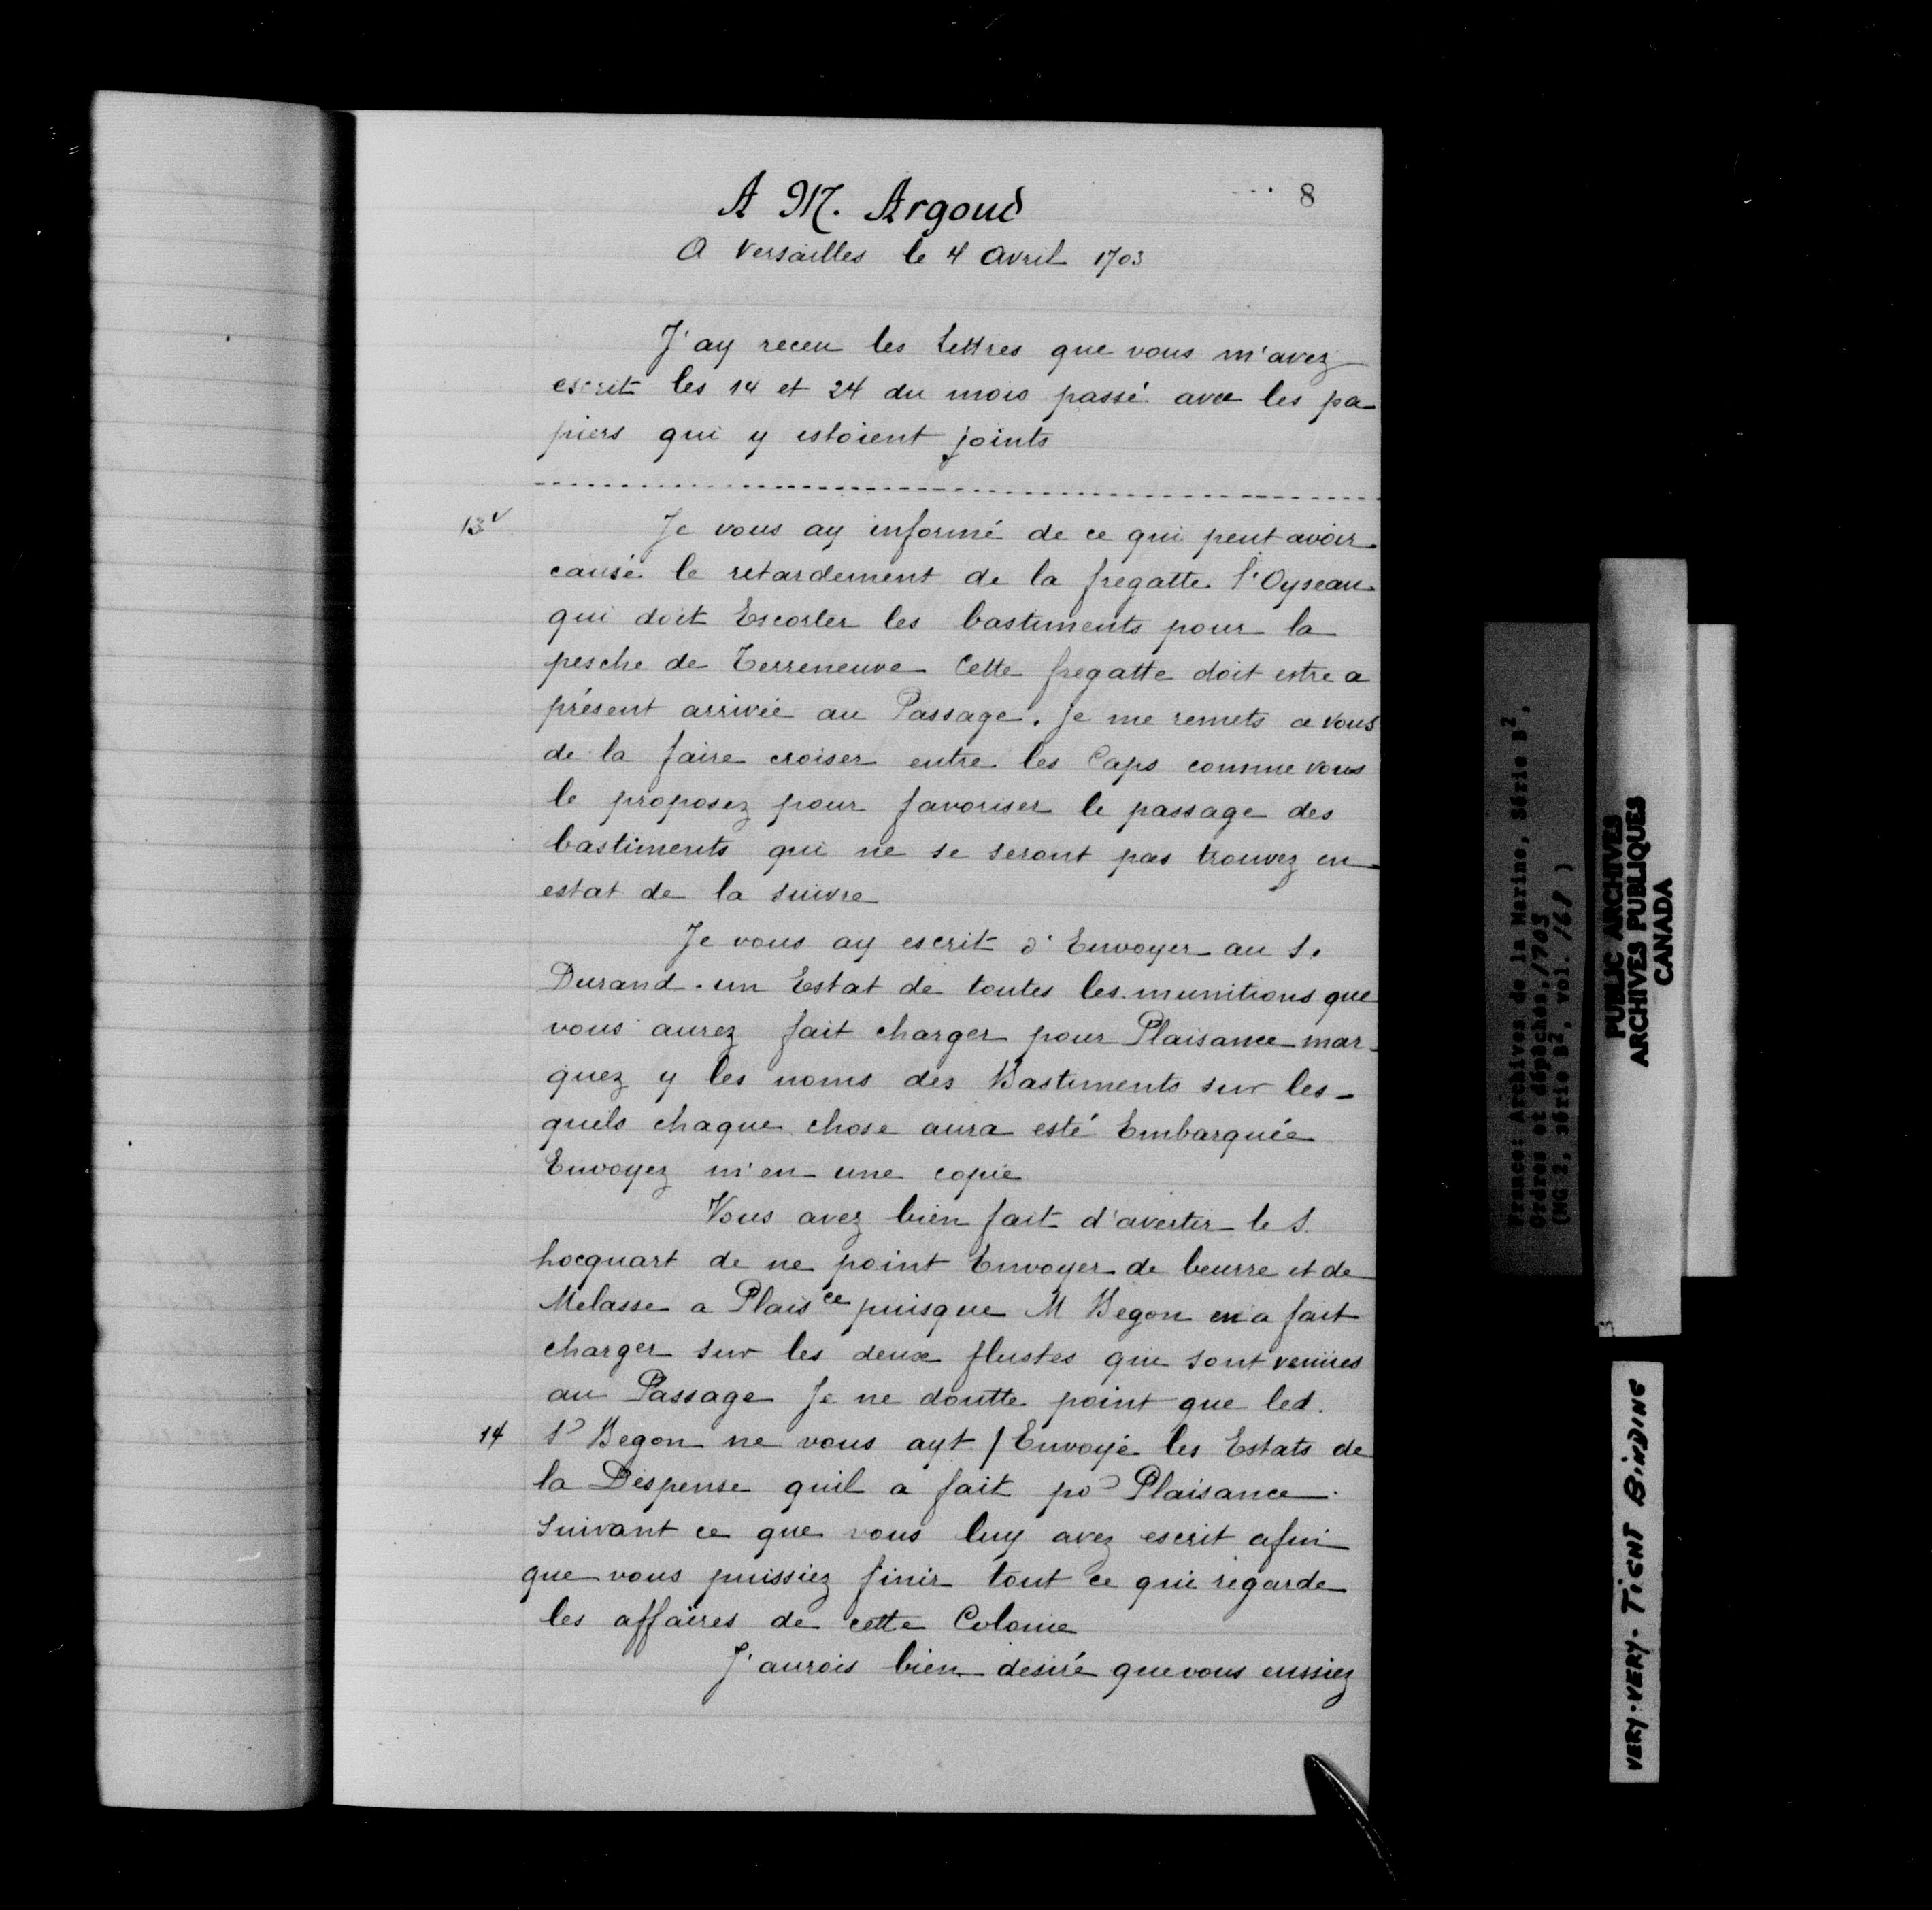 8
A M. Argoud
A Versailles le 4 Avril 1703
J'ay receu les Lettres que vous m'avez
escrit les 14 et 24 du mois passé avec les pa-
piers qui y estoient joints
13v
Je vous ay informé de ce qui peut avoir
causé le retardement de la fregatte l'Oyseau
qui doit Escorter les bastiments pour la
pesche de Terreneuve Cette fregatte doit estre a
présent arrivée au Passage. Je me remets a vous
de la faire croiser entre les Caps comme vous
le proposez pour favoriser le passage des
bastiments qui ne se seront pas trouvez en
estat de la suivre
Je vous ay escrit d'Envoyer au S.
Durand un Estat de toutes les munitions que
vous aurez fait charger pour Plaisance mar-
quez y les noms des Bastiments sur les-
quels chaque chose aura esté Embarquée
Envoyez m'en une copie
Vous avez bien fait d'avertir le S.
hocquart de ne point Envoyer de beurre et de
Melasse a Plaisce puisque M Begon en a fait
charger sur les deux flustes qui sont venues
au Passage Je ne doutte point que led.
14
Sr Begon ne vous ayt / Envoyé les Estats de
la Despense quil a fait pr Plaisance.
Suivant ce que vous luy avez escrit afin
que vous puissiez finir tout ce qui regarde
les affaires de cette Colonie
J'aurois bien desiré que vous eussiez
France: Archives de la Marine, Série B2,
Ordres et dépêches, 1703
(MG 2, série B2, vol. 161 )
PUBLIC ARCHIVES
ARCHIVES PUBLIQUES
CANADA
3
VERY-VERY-TIGHT BINDING